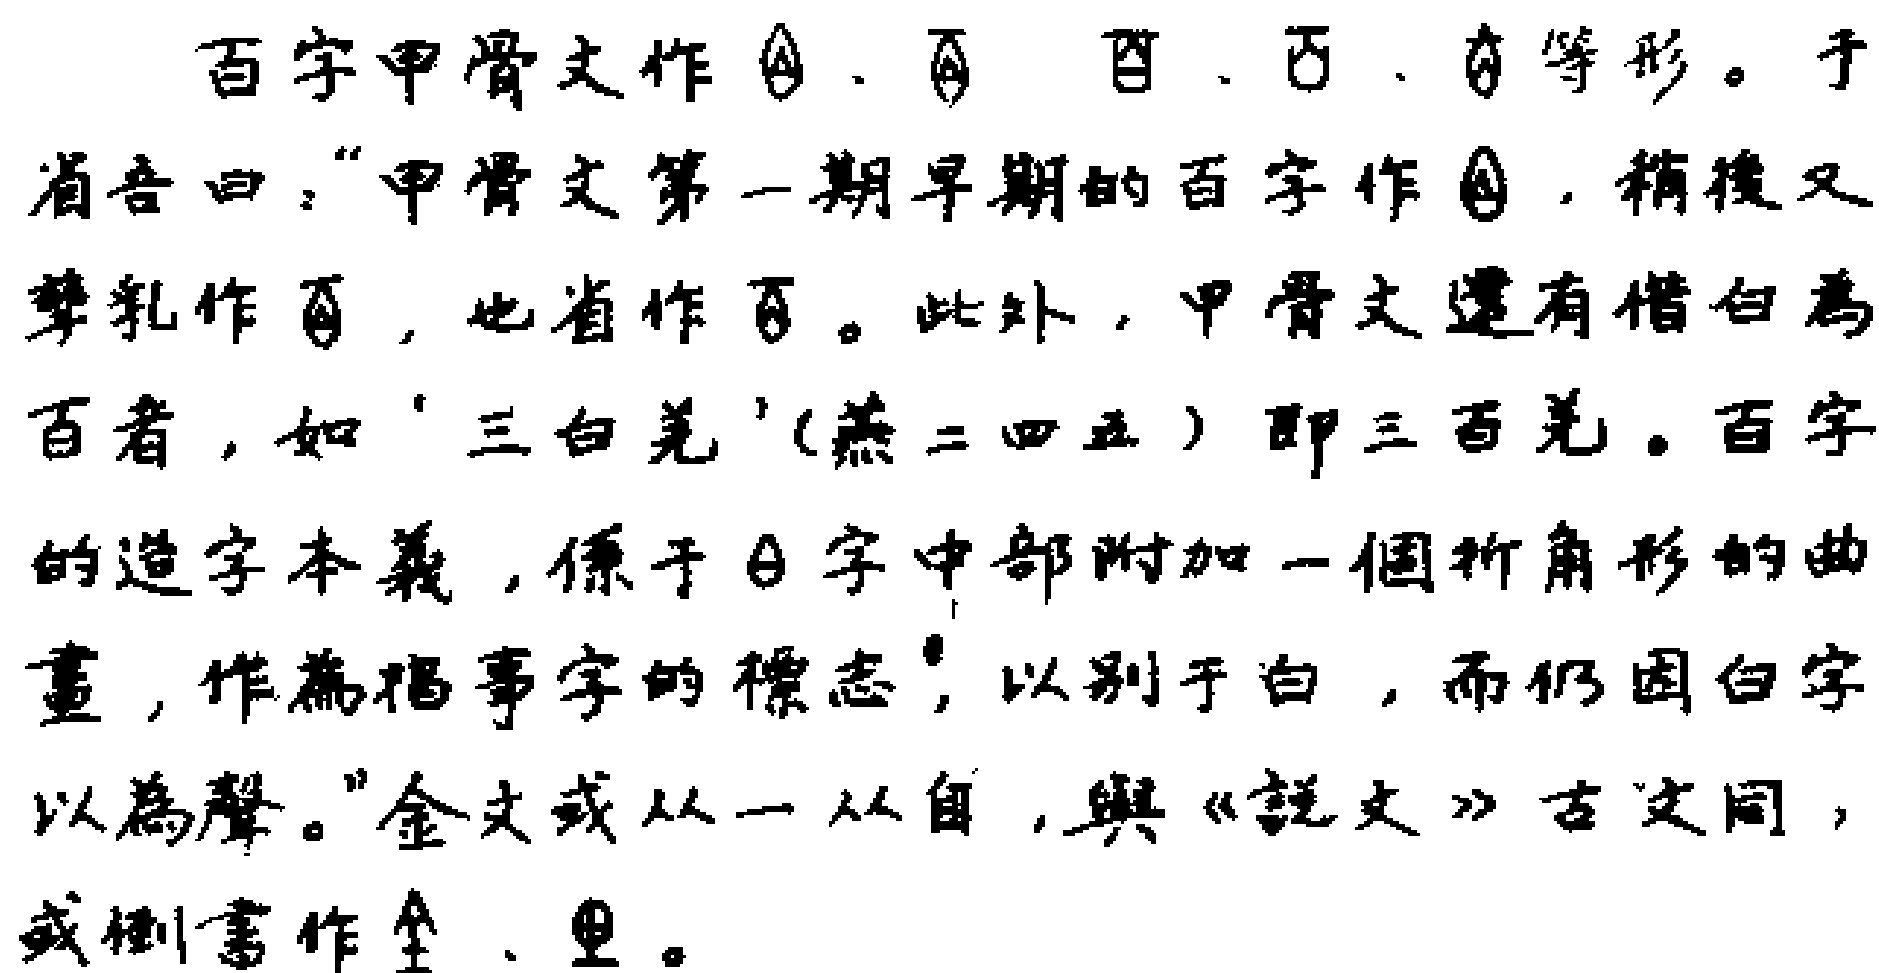 百字甲骨文作、、、等形。于
省吾曰：“甲骨文第一期早期的百字作，稍後又
孳乳作，也省作。此外，甲骨文還有借白為
百者，如‘三白羌’（燕二四五）即三百羌。百字
的造字本義，係于字中部附加一個折角形的曲
畫，作為指事字的標志，以别于白，而仍因白字
以為聲。”金文或从一从自，與《説文》古文同，
或倒書作、。